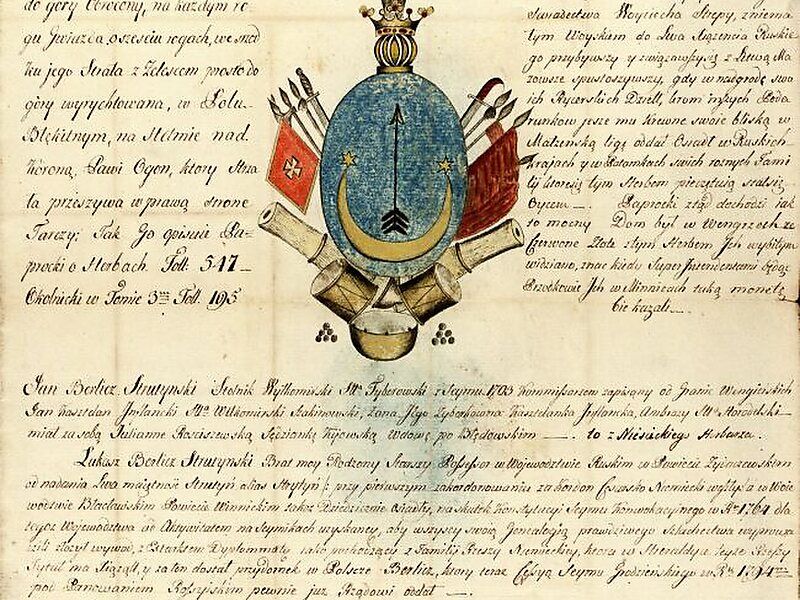 do góry Obrócony, na każdym ro-
gu Gwiazda o sześciu rogach, we śrzod
ku jego Strzała z Żelescem prosto do
góry wyrychtowana, w Polu
Błękitnym, na Hełmie nad
Koroną. Pawi Ogon, ktory Strza
ła przeszywa w prawą strone
Tarczy; Tak Go opisuie Pa-
procki o Herbach Foll: 547 _
Okolnicki w Tomie 3 Foll. 195
Swiadectwa Woyciecha Strepy, z niema
łym Woyskiem do Lwa Xiążęcia Ruskie
go przybywszy y związawszy się z Litwą Ma
zowsze spustoszywszy, gdy w nadgrodę swo
ich Rycerskich Dzieł, krom inszych Poda
runkow jesze mu Krewne swoie bliską w
Małżenską ligę oddał Osiadł w Ruskich
krajach y w Potomkach swoich roznych Fami
tym Herbem pieczętują
Paprocki ztąd dochodzi jak
to mocny Dom był w Węngrzech ze
Czerwone Złote z tym Herbem Jch wybitym
widziano, znac kiedy Super Jntendentami będąc
Jch w Minnicach taką monetę
bić kazali _.
Jan Berlicz Strutynski Stolnik Wyłkomirski z Seymu 1703 Kommissarzem zapisany od Granic Wengierskich
Jan Kasztelan Jnflancki Wiłkomirski Żona Jego Zyberkowna Kasztelanka Jnflancka, Ambroży Horodelski
miał za sobą Juliannę Rościszewską Sędziankę Kijowską Wdowę po Błędowskim _. to z Niesieckiego Herbarza.
Łukasz Berlicz Strutynski Brat moy Rodzony Starszy Possessor w Woiewodztwie Ruskim w Powiecie
od nadania Lwa maiętność Strutyn alias Stratyn przy pierwszym zakordonowaniu za Kordon Cesarsko Niemiecki w Woie
wodztwie Bracławskim Powiecie Winnickim także Dziedzicznie Osiadły, na skutek Konstytucyi Seymu Konwokacyinego w Rku 1764 dla
tegoż Woiewodztwa od Aktywitatem na Seymikach uzyskaney, aby wszyscy swoią Genealogią prawdziwego Szlachectwa wyprowa
dzili złożył wywod, jako pochodzący z Familii Rzeszy Niemieckiey, która w
Tytuł ma Xiążąt, y za ten dostał przydomek w Polszcze Berlicz, ktory teraz Seymu Grodzieńskiego w Rku 1794
pod Panowaniem Rossyiskim pewnie już Rządowi oddał _.